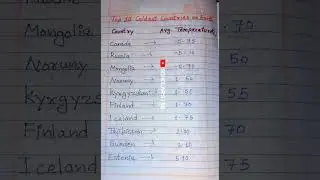 Top 10 Coldest Countries on Earth
Country Avg Temperature
Canada → -5.35
Russia →
Mongolia →
Norway → 1.50
Kyrgyzstan → 1.55
Finland → 1.70
Iceland → 1.75
2.00
Sweden → 2.10
Estonia 5.10
Mongolia
Norway
Kyrgyz
Finland
Iceland
70
50
55
70
75